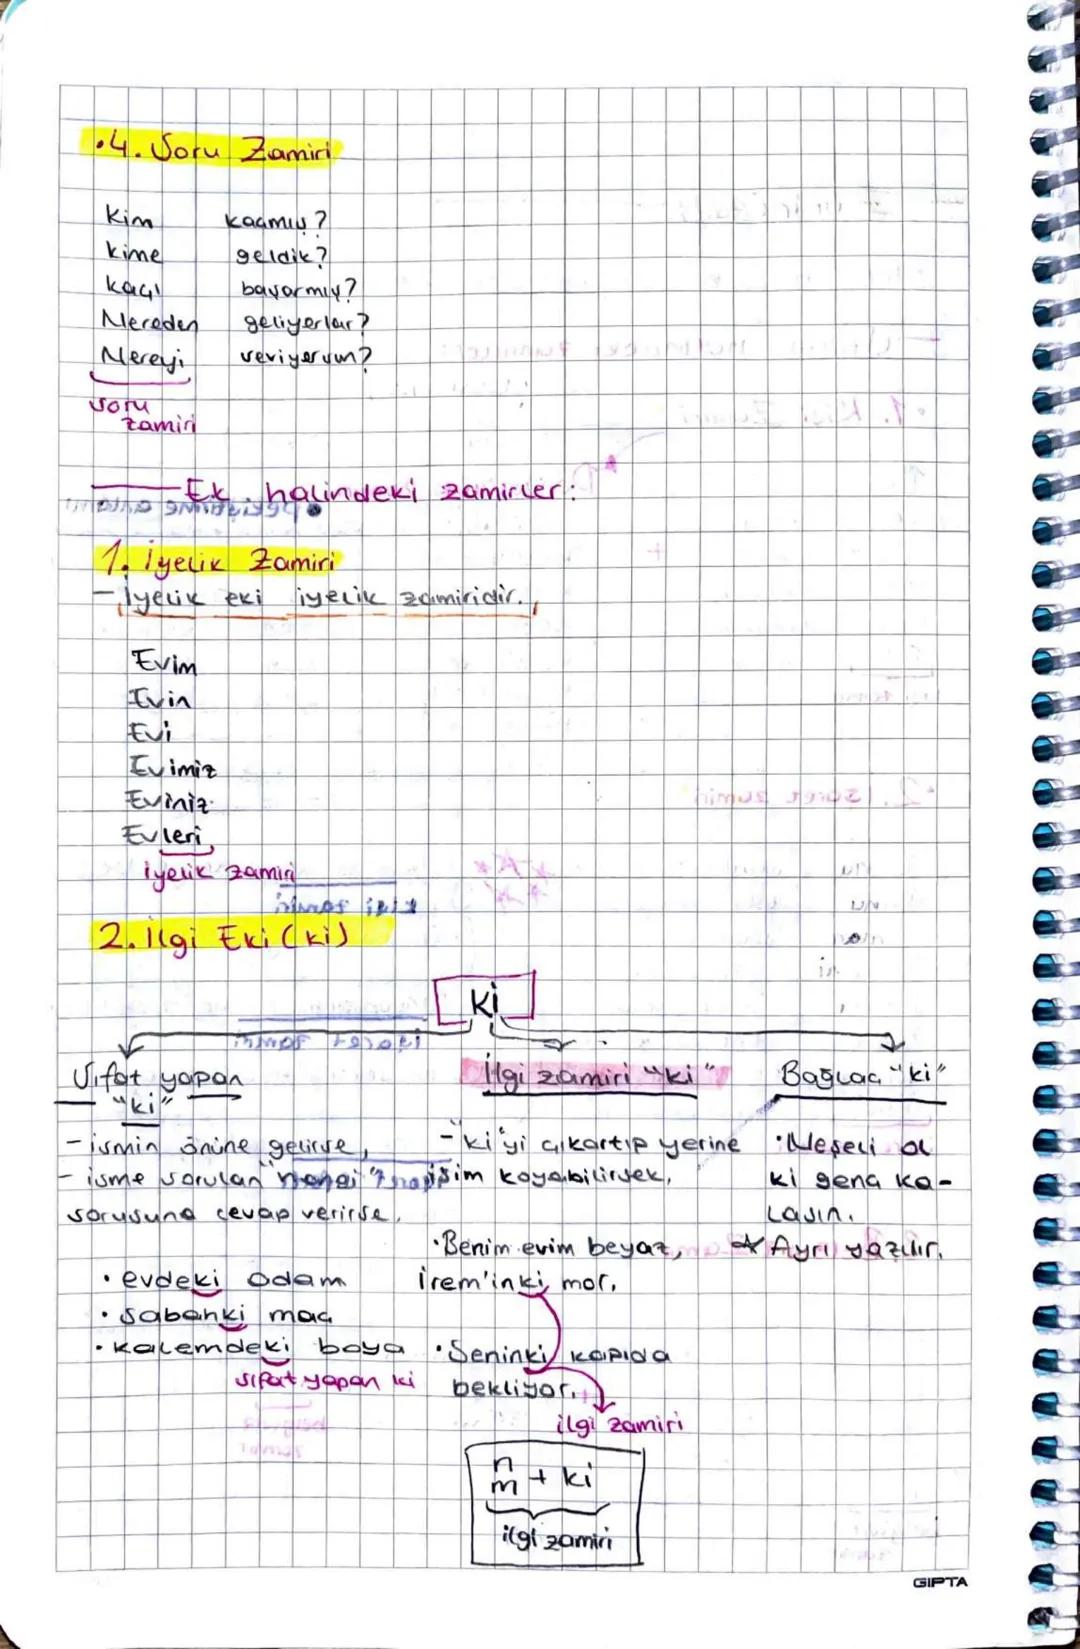 •4. Soru Zamiri
Kim kaçmış?
Kime geldik?
Kaçı başarmış?
Nereden geliyorlar?
Nereyi seviyorsun?
soru
zamiri
Ek halindeki zamirler:
1. İyelik Zamiri
- İyelik eki iyelik zamiridir.
Evim
Evin
Evi
Evimiz
Eviniz
Evleri
iyelik zamiri
2. İlgi Eki (ki)
ki
Sıfat yapan
"ki"
- ismin önüne gelirse,
- isme sorulan "hangi"
sorusuna cevap verirse,
• evdeki odam
• sabahki maç
• kalemdeki boya
sıfat yapan ki
İlgi zamiri "ki"
- "ki"yi çıkartıp yerine
isim koyabilirsek,
•Benim evim beyaz,
İrem'inki mor.
•Seninki kapıda
bekliyor.
ilgi zamiri
n
m + ki
ilgi zamiri
Bağlaç "ki"
•Neşeli ol
ki genç ka-
lasın.
* Ayrı yazılır.
GIPTA